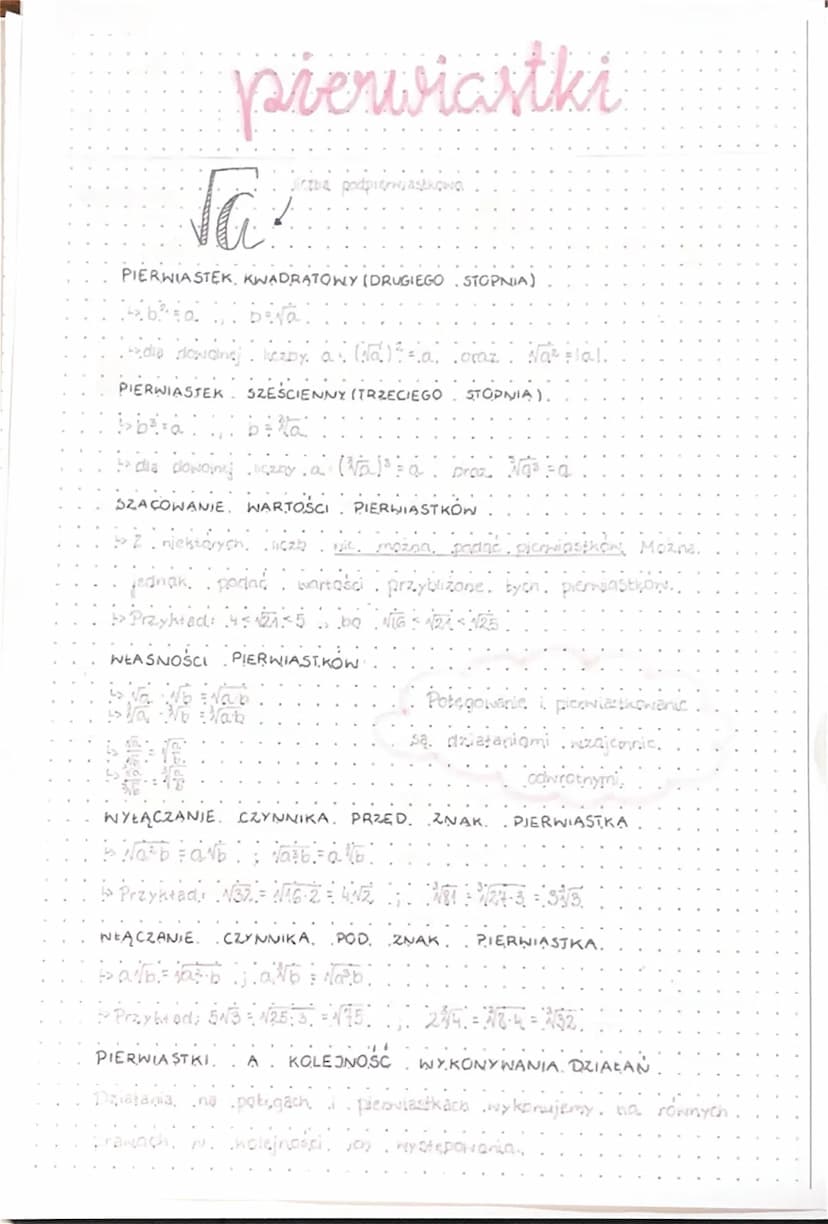 pierwiastki
√a
liczba podpierwiastkowa
PIERWIASTEK KWADRATOWY (DRUGIEGO STOPNIA)
↳ b² = a , b = √a
↳ dla dowolnej liczby a (√a)² = a oraz √a² = |a|.
PIERWIASTEK SZEŚCIENNY (TRZECIEGO STOPNIA)
↳ b³ = a , b = ∛a
↳ dla dowolnej liczby a (∛a)³ = a oraz ∛a³ = a
SZACOWANIE WARTOŚCI PIERWIASTKÓW
↳ Z niektórych liczb nie można podać pierwiastków. Można
jednak podać wartości przybliżone tych pierwiastków.
↳ Przykład: 4 < √21 < 5 , bo √16 < √21 < √25
WŁASNOŚCI PIERWIASTKÓW
↳ √a · √b = √ab
↳ ∛a · ∛b = ∛ab
↳ √a/√b = √(a/b)
↳ ∛a/∛b = ∛(a/b)
Potęgowanie i pierwiastkowanie
są działaniami wzajemnie
odwrotnymi.
WYŁĄCZANIE CZYNNIKA PRZED ZNAK PIERWIASTKA
↳ √a²b = a√b ; ∛a³b = a∛b
↳ Przykład: √32 = √16·2 = 4√2 ; ∛81 = ∛27·3 = 3∛3
WŁĄCZANIE CZYNNIKA POD ZNAK PIERWIASTKA
↳ a√b = √a²·b ; a∛b = ∛a³b
↳ Przykład: 5√3 = √25·3 = √75 ; 2∛4 = ∛8·4 = ∛32
PIERWIASTKI A KOLEJNOŚĆ WYKONYWANIA DZIAŁAŃ
Działania na potęgach i pierwiastkach wykonujemy na równych
prawach w kolejności ich występowania.